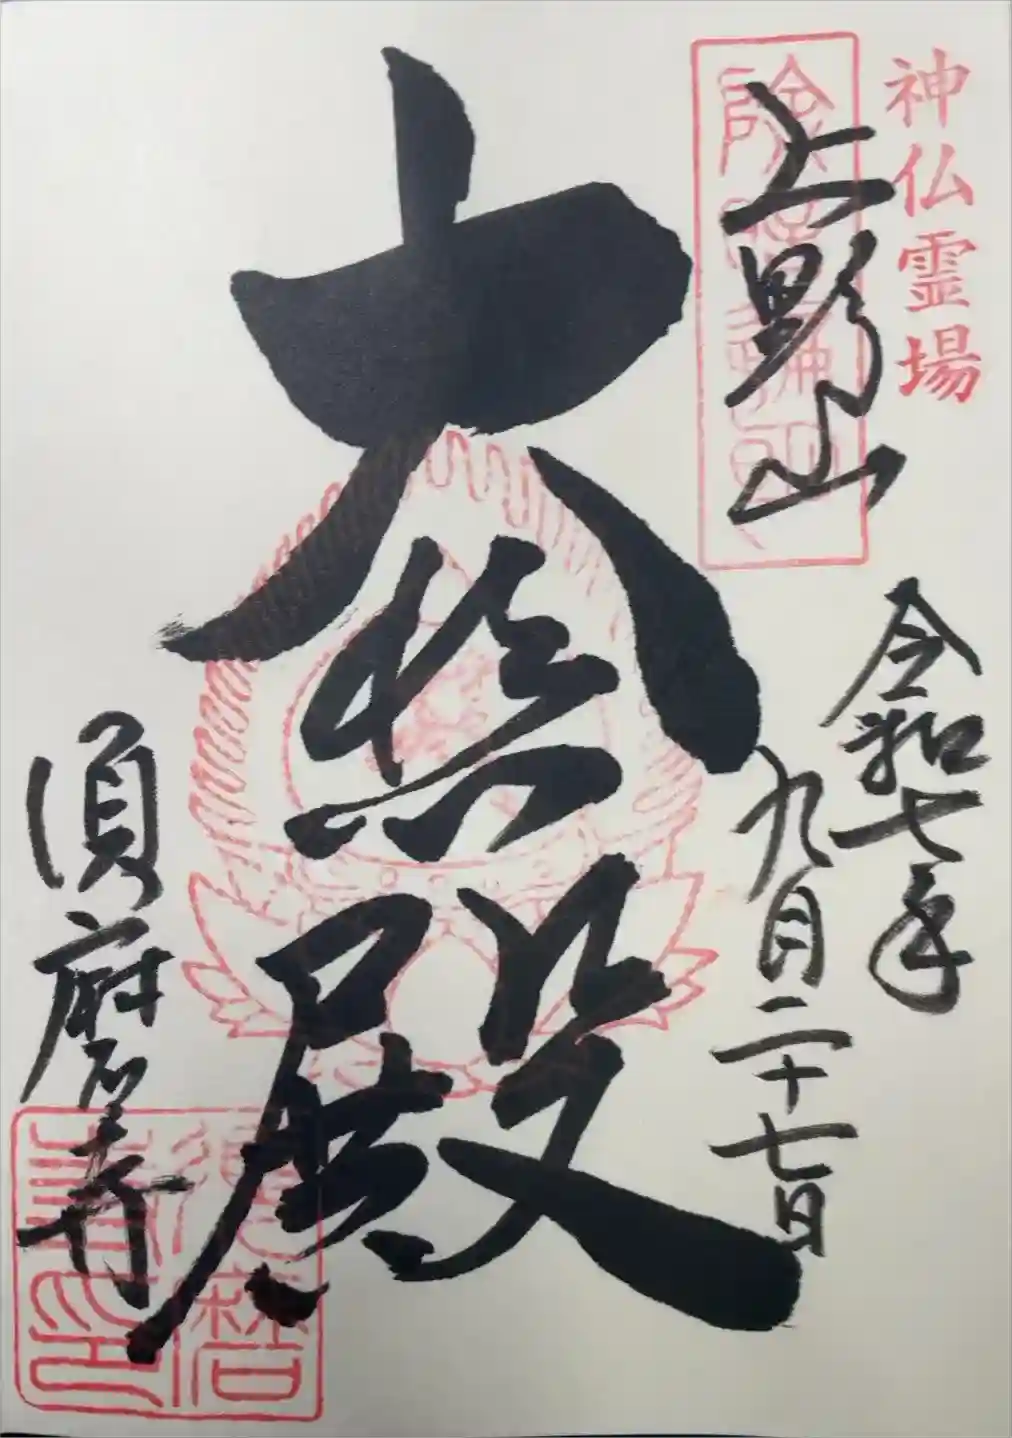 神仏霊場
上野山
令和七年
九月二十七日
大悲殿
須磨寺
須磨
寺印